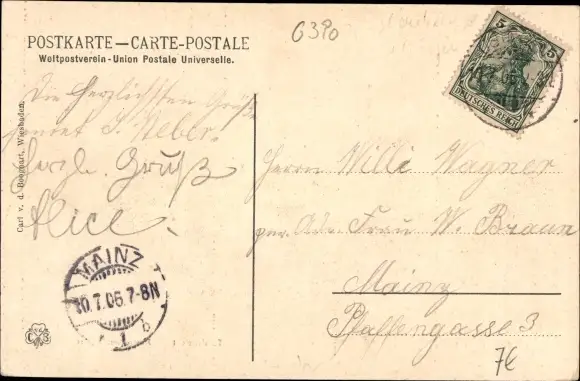 6390
POSTKARTE—CARTE-POSTALE
Weltpostverein-Union Postale Universelle.
5 5
DEUTSCHES REICH
Die herzlichsten Grüße
sendet S. Weber.
Herzl. Gruß
Alice.
Carl v. d. Boogaart, Wiesbaden.
Herrn Willi Wagner
per. Adr. Frau W. Braun
Mainz
Pfaffengasse 3
MAINZ
10.7.06.7-8N
1 b
7€